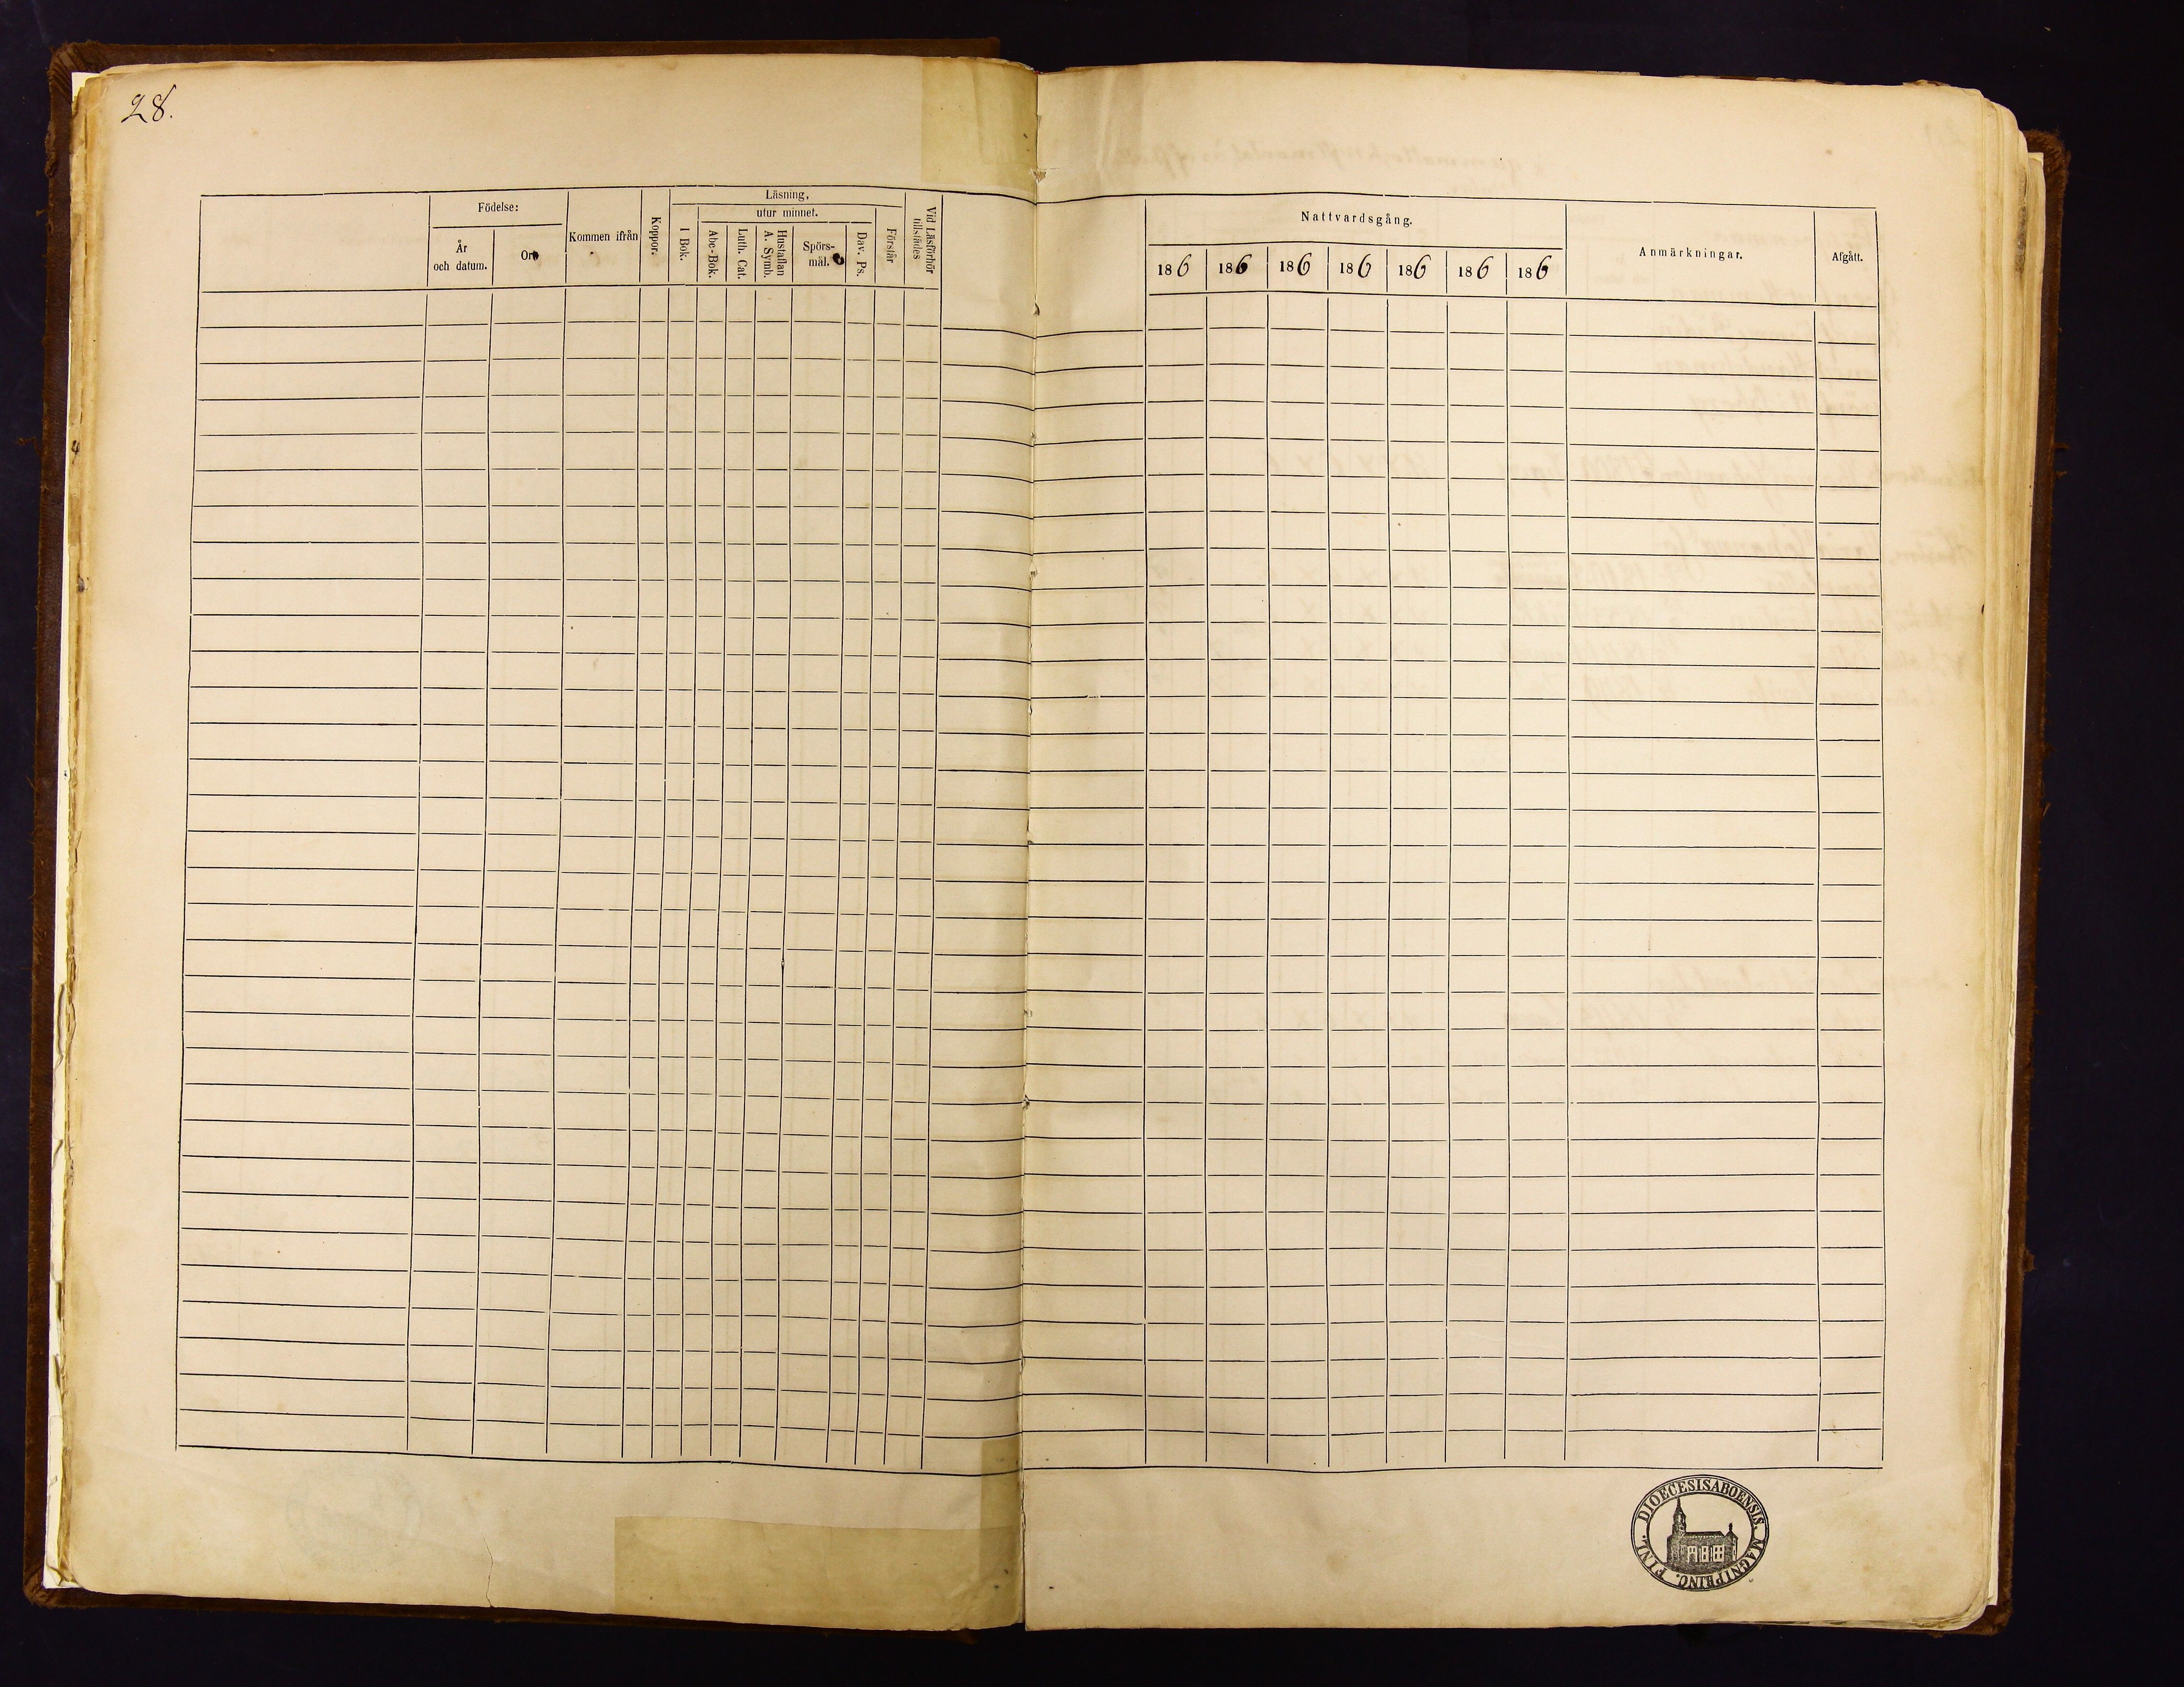 28.
Födelse:
År
och datum.
Ort
Kommen ifrån
Koppor.
Läsning,
utur minnet.
I Bok.
Abc-Bok.
Luth. Cat.
Hustaflan
A. Symb.
Spörs-
mål.
Dav. Ps.
Förstår
Vid Läsförhör
tillstädes
Nattvardsgång.
186 186 186 186 186 186 186
Anmärkningar.
Afgått.
DIOECESIS ABOENSIS. MAGNI PRINC. FINL.